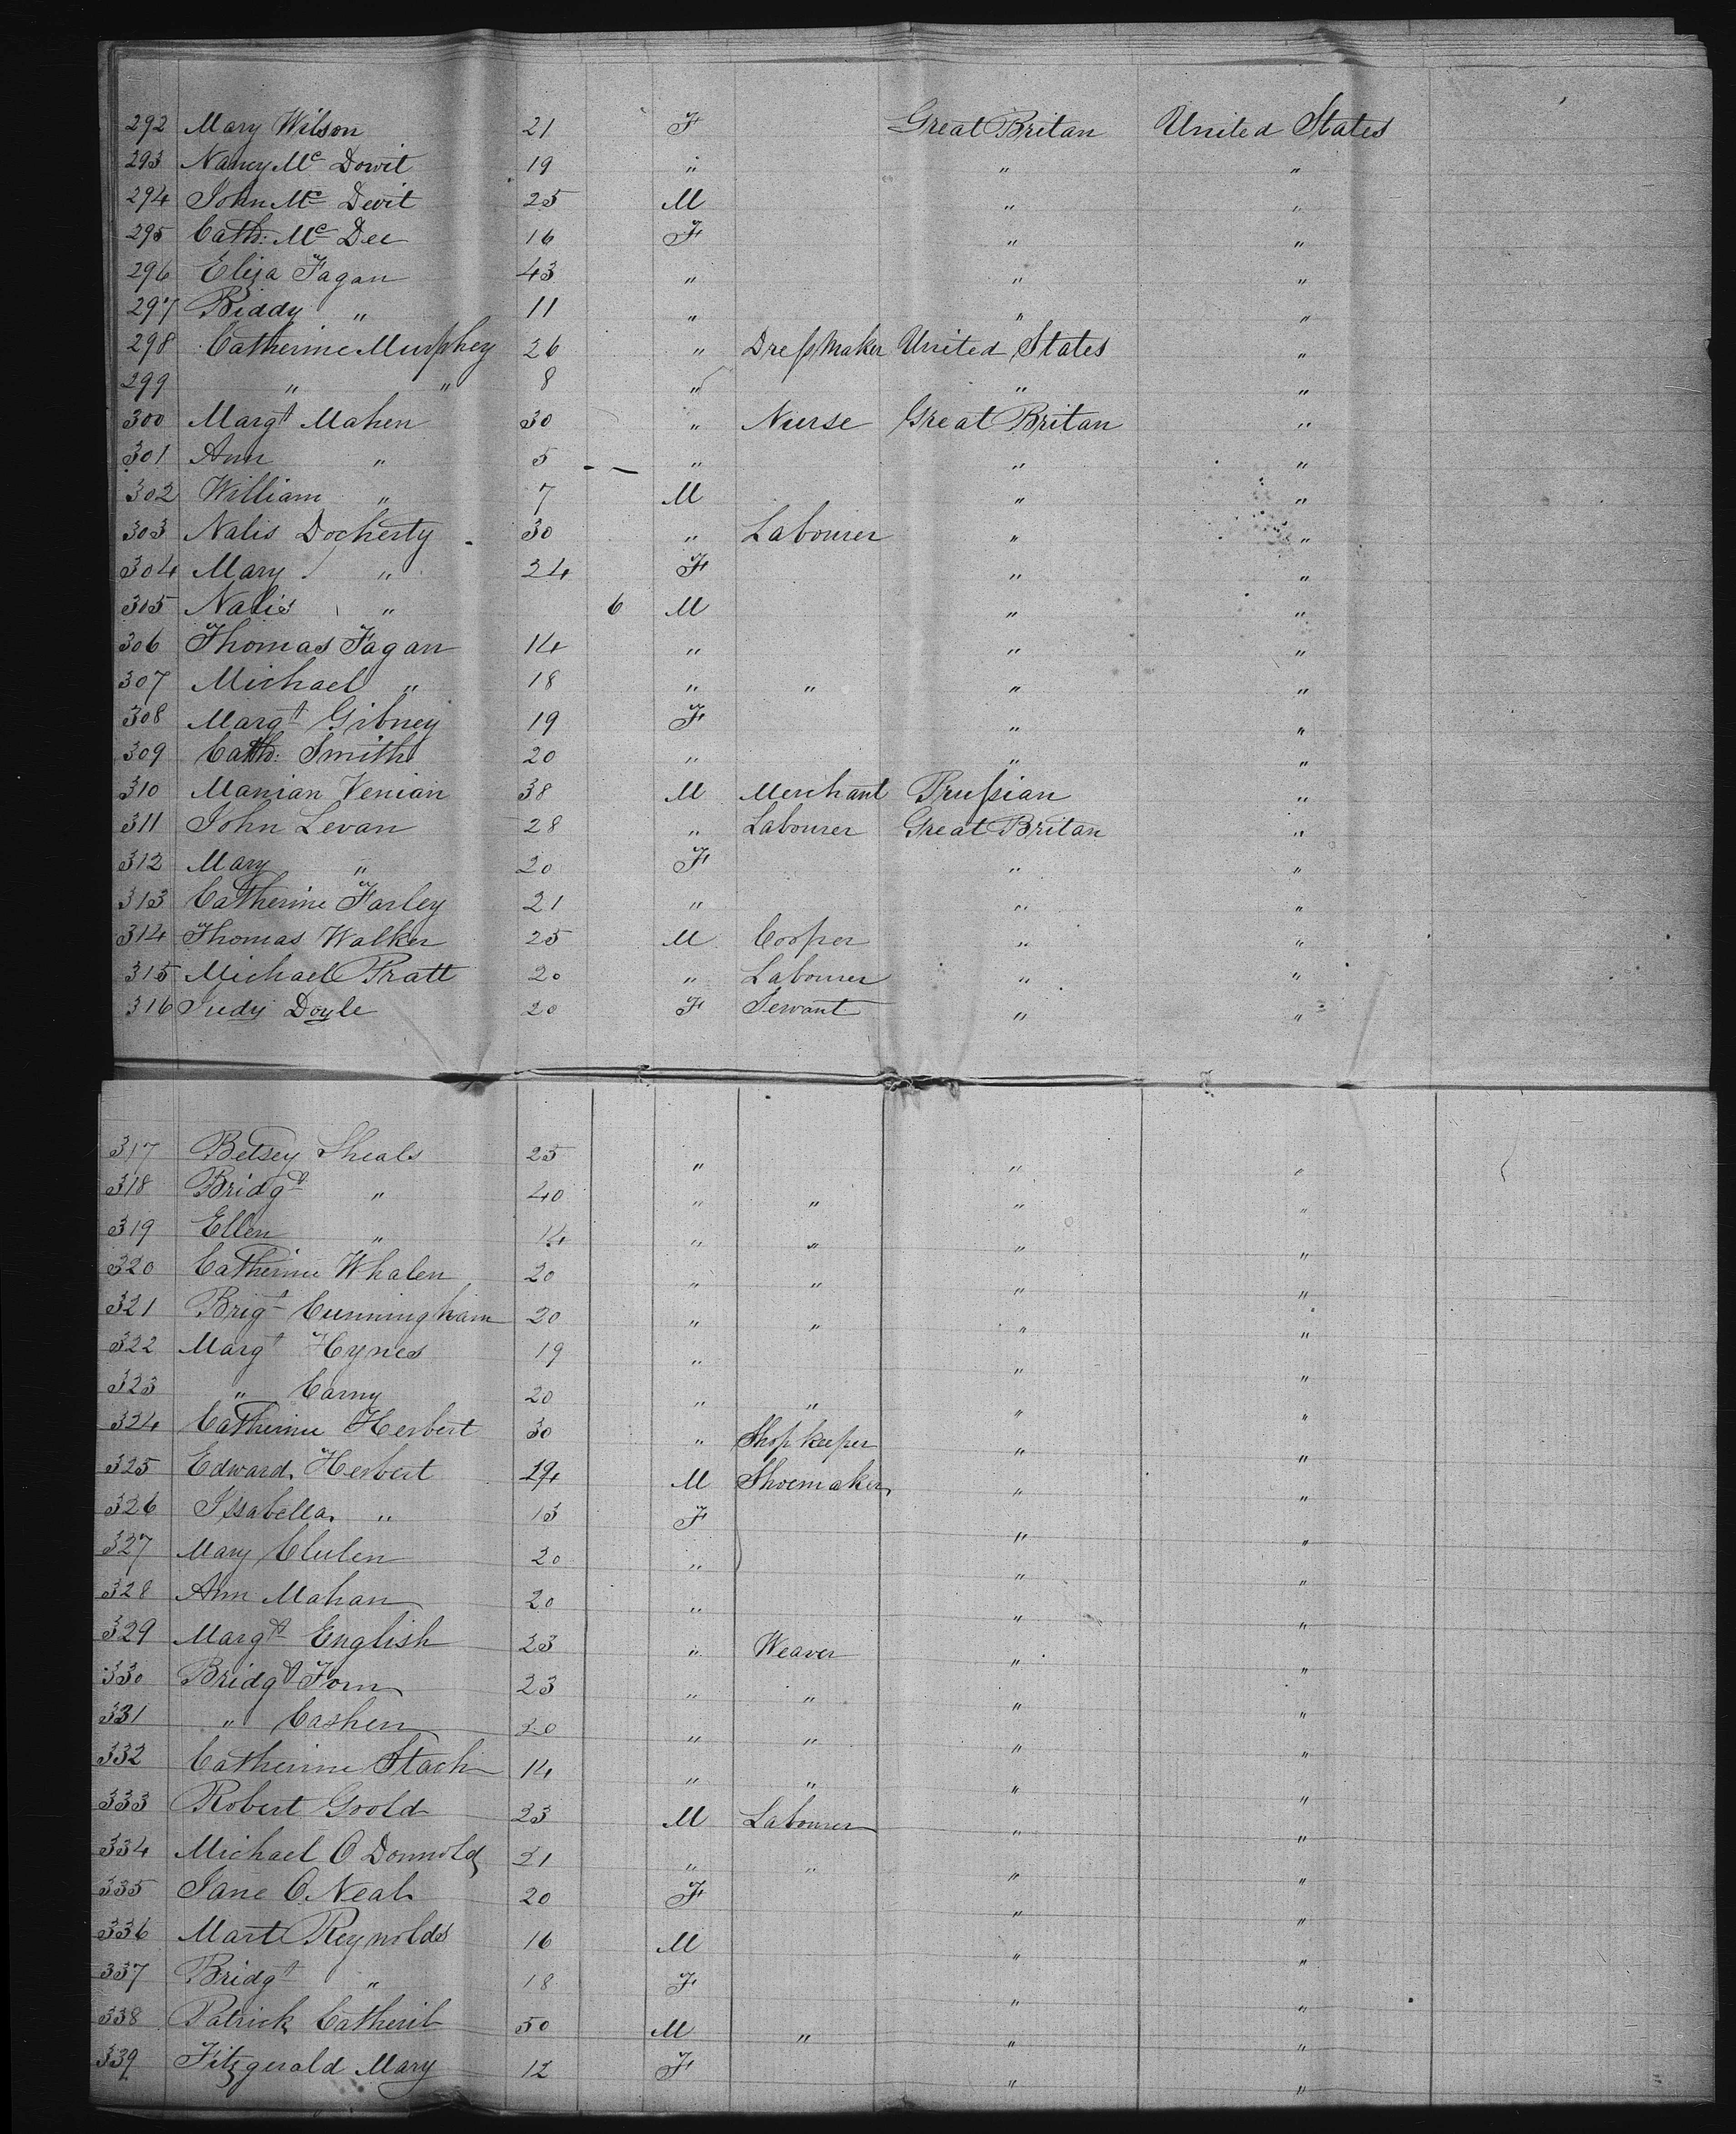 292 Mary Wilson 21 F Great Britan United States
293 Nancy Mc Dowit 19 " " "
294 John Mc Devit 25 M " "
295 Cath: Mc Dee 16 F " "
296 Eliza Fagan 43 " " "
297 Biddy " 11 " " "
298 Catherine Murphey 26 " Dressmaker United States "
299 " " 8 " " "
300 Margt Mahen 30 " Nurse Great Britan "
301 Ann " 5 " " "
302 William " 7 M " "
303 Nalis Docherty 30 " Labourer " "
304 Mary " 24 F " "
305 Nalis " 6 M " "
306 Thomas Fagan 14 " " "
307 Michael " 18 " " " "
308 Margt Gibney 19 F " "
309 Cath: Smith 20 " " "
310 Manian Venian 38 M Merchant Prussian "
311 John Levan 28 " Labourer Great Britan "
312 Mary " 20 F " "
313 Catherine Farley 21 " " "
314 Thomas Walker 25 M Cooper " "
315 Michael Pratt 20 " Labourer " "
316 Judy Doyle 20 F Servant " "
317 Betsey Sheals 25 " " "
318 Bridgt " 40 " " " "
319 Ellen " 14 " " " "
320 Catherine Whalen 20 " " " "
321 Brigt Cunningham 20 " " " "
322 Margt Hynes 19 " " "
323 " Carny 20 " " " "
324 Catherine Herbert 30 " Shopkeeper " "
325 Edward Herbert M Shoemaker " "
326 Issabella " 13 F " "
327 Mary Clulen 20 " " "
328 Ann Mahan 20 " " "
329 Margt English 23 " Weaver " "
330 Bridgt Forn 23 " " " "
331 " Cashen 20 " " " "
332 Catherine Stach 14 " " " "
333 Robert Goold 23 M Labourer " "
334 Michael O Donnold 21 " " " "
335 Jane O.Neal 20 F " "
336 Mart Reynolds 16 M " "
337 Bridgt " 18 F " "
338 Patrick Catheril 50 M " " "
339 Fitzgerald Mary 12 F " "